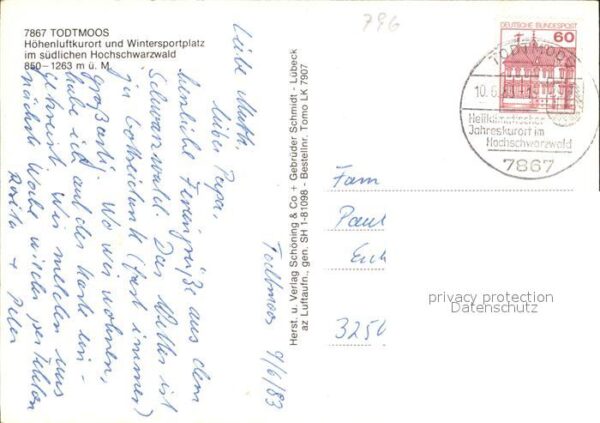 7867 TODTMOOS
Höhenluftkurort und Wintersportplatz
im südlichen Hochschwarzwald
850–1263 m ü. M.
796
DEUTSCHE BUNDESPOST
60
TODTMOOS
10.6.83
Heilklimatischer
Jahreskurort im
Hochschwarzwald
7867
Todtmoos 9/6/83
Liebe Mutti,
lieber Papa,
herzliche Feriengrüße aus dem
Schwarzwald. Das Wetter ist
ja (fast immer)
großartig. Wo wir wohnen,
habe ich auf der Karte ein-
gekreist. Wir melden uns
nächste Woche wieder per Telefon
Rosita + Peter
Herst. u. Verlag Schöning & Co + Gebrüder Schmidt - Lübeck
az Luftaufn., gen. SH 1-81098 - Bestellnr. Tomo LK 7907
Fam
Paul
3250
privacy protection
Datenschutz